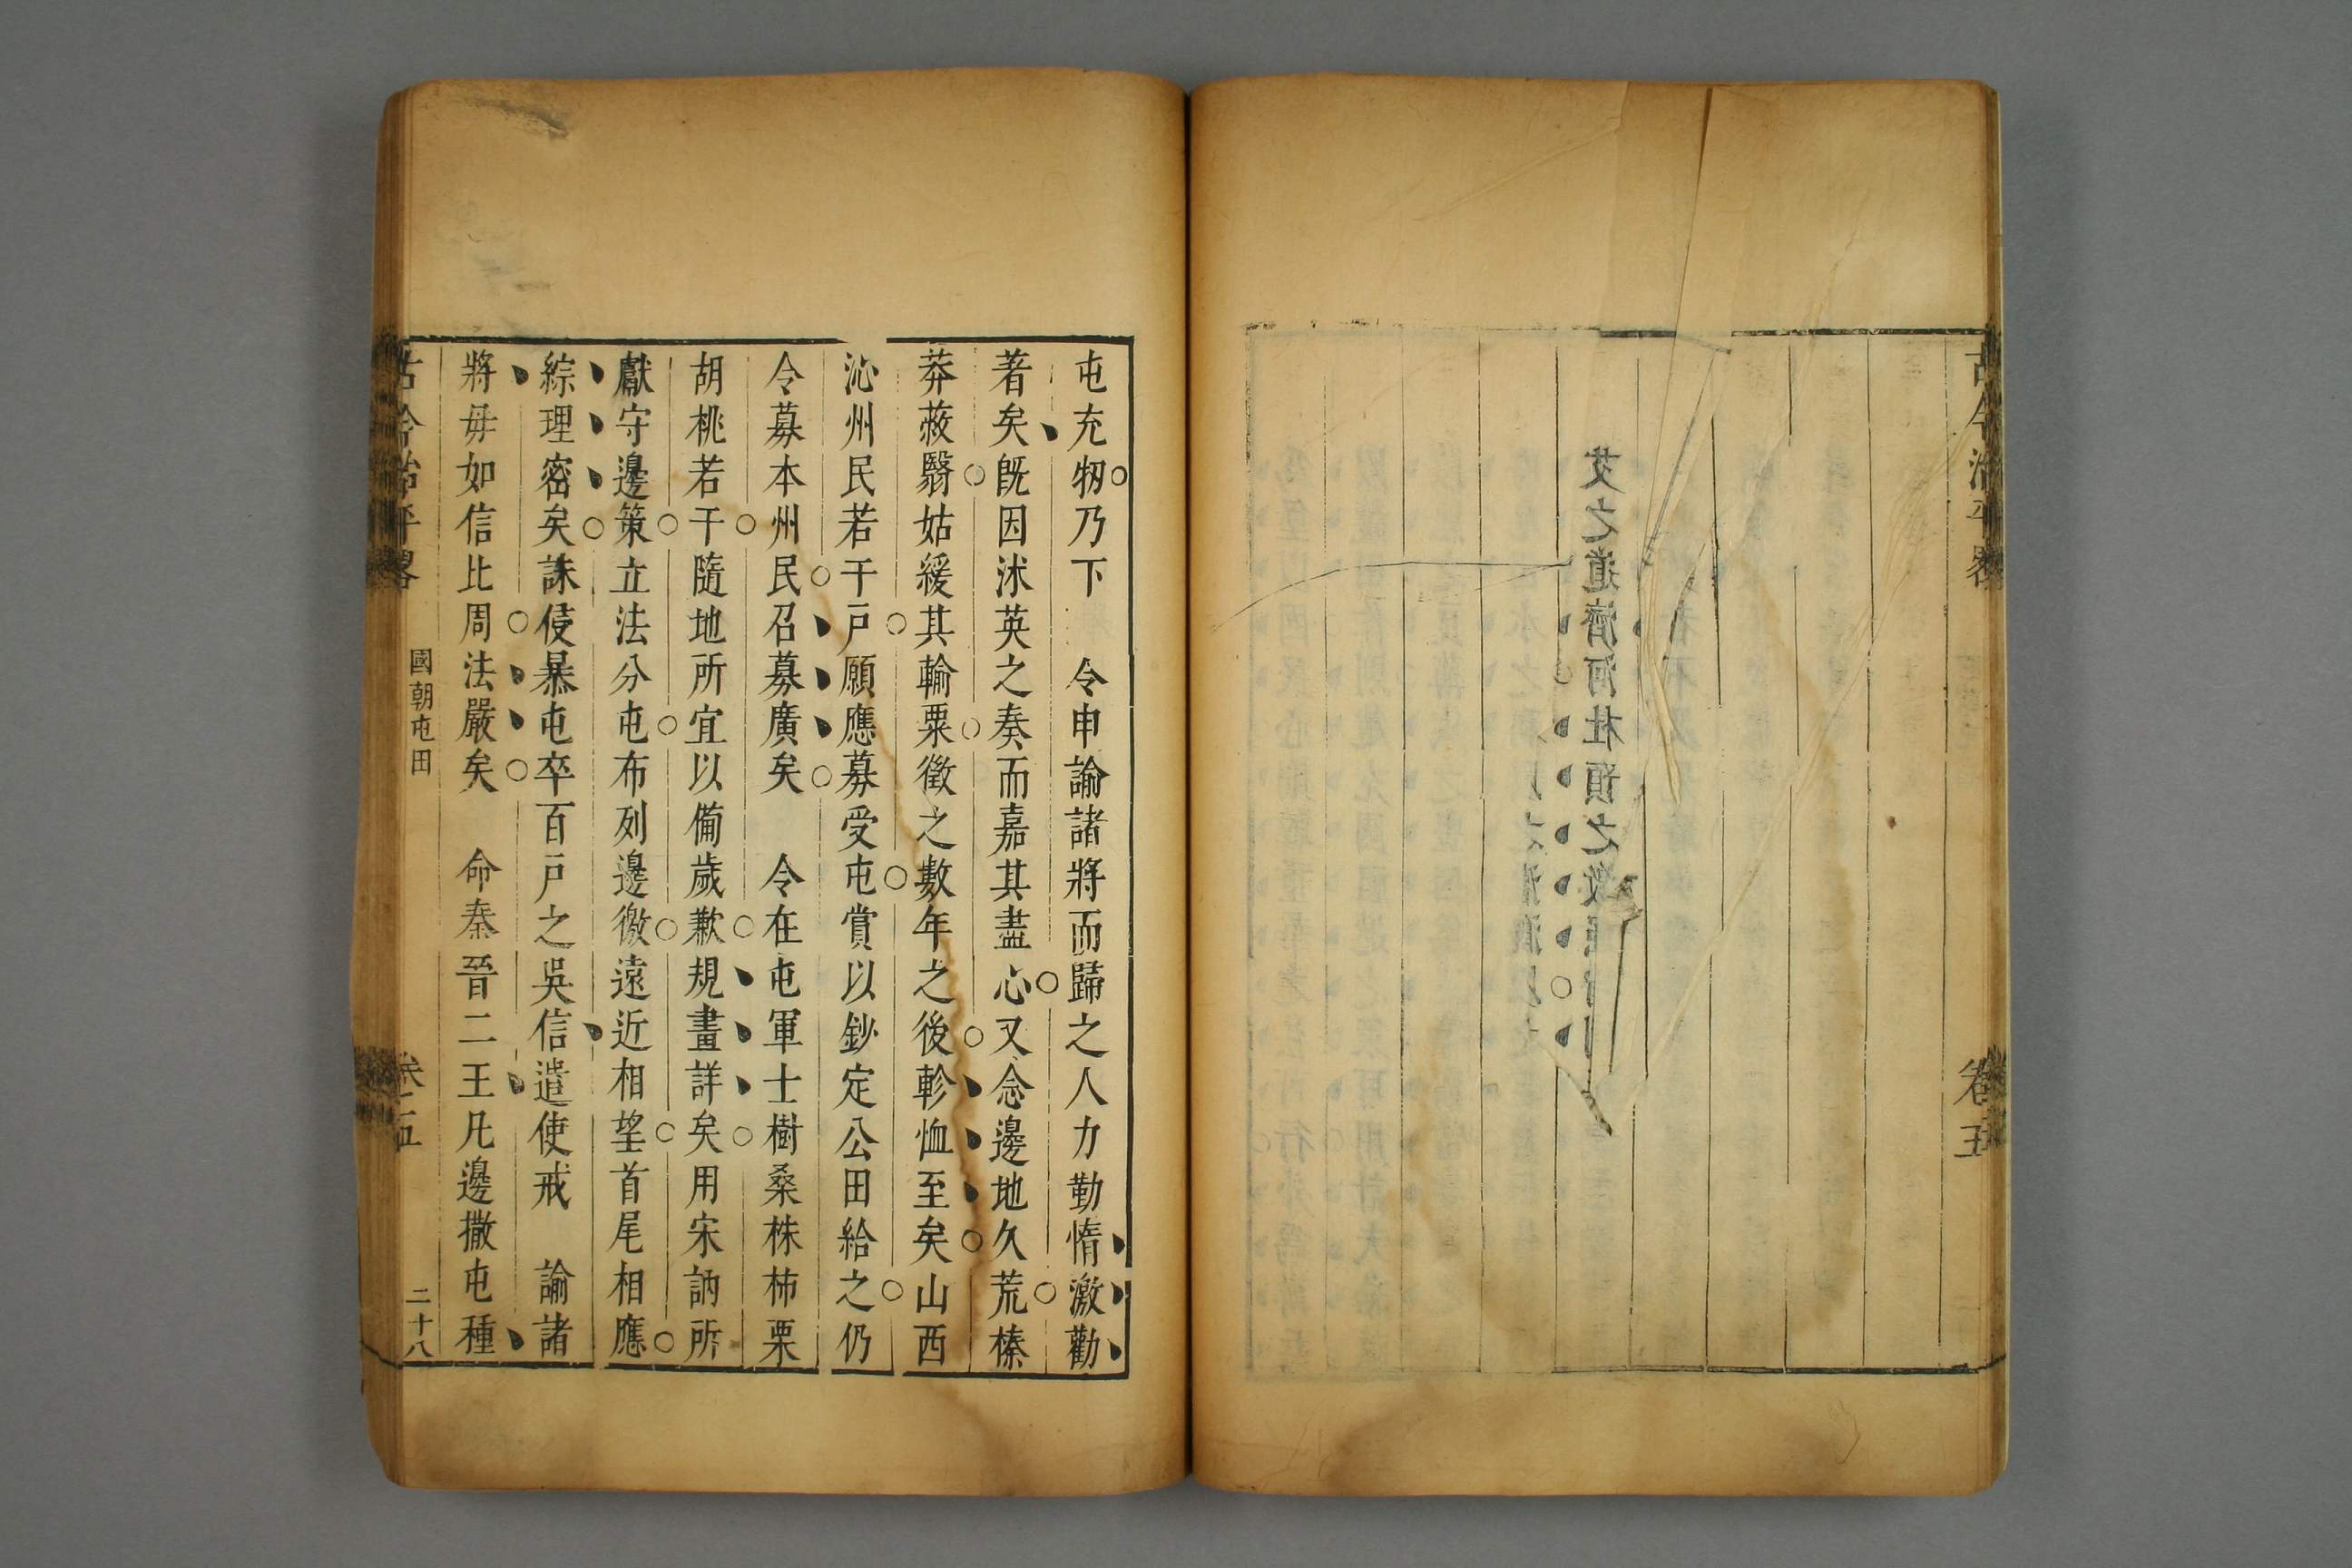 古今治平畧
卷五
艾之道濟河杜預之
屯充牣乃下　令申諭諸將而歸之人力勤惰激勸
著矣既因沭英之奏而嘉其盡心又念邊地久荒榛
莽蔽翳姑緩其輸粟徵之數年之後軫恤至矣山西
沁州民若干戶願應募受屯賞以鈔定公田給之仍
令募本州民召募廣矣　令在屯軍士樹桑株柿栗
胡桃若干隨地所宜以備歲歉規畫詳矣用宋訥所
獻守邊策立法分屯布列邊徼遠近相望首尾相應
綜理密矣誅侵暴屯卒百戶之吳信遣使戒　諭諸
將毋如信比周法嚴矣　命秦晉二王凡邊撒屯種
古今治平畧
國朝屯田
卷五
二十八